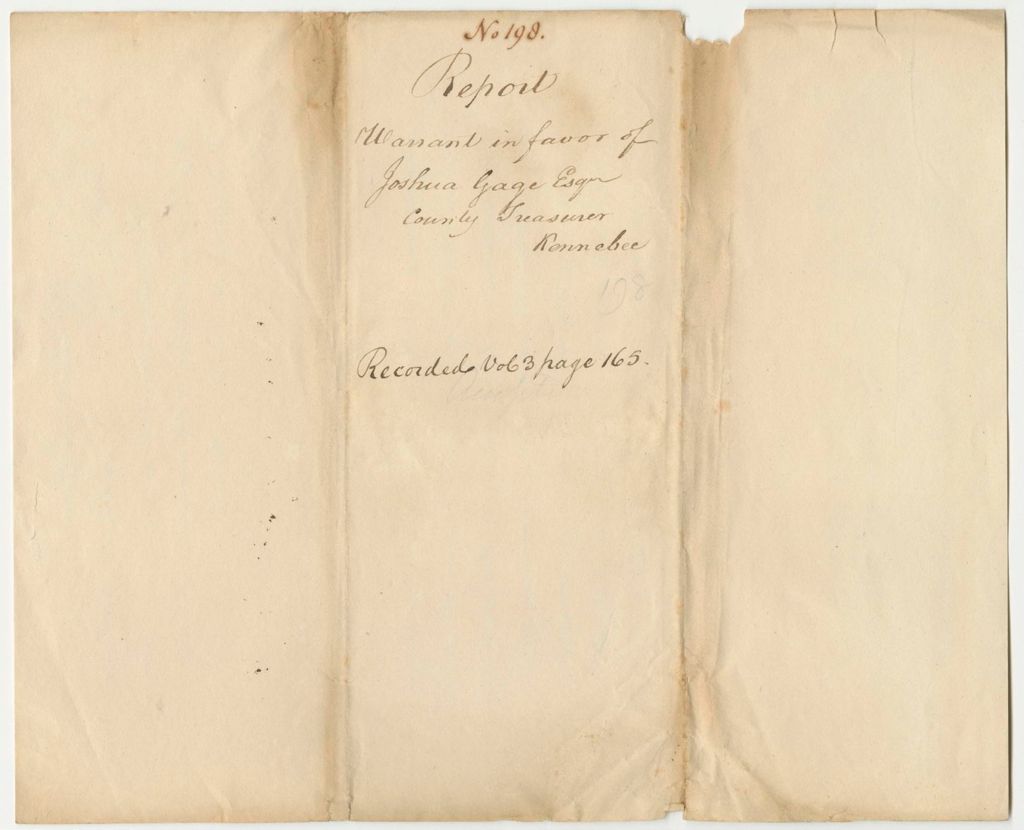 No 198.
Report
Warrant in favor of
Joshua Gage Esqr
County Treasurer
Kennebec
198
Recorded Vol 3 page 165.